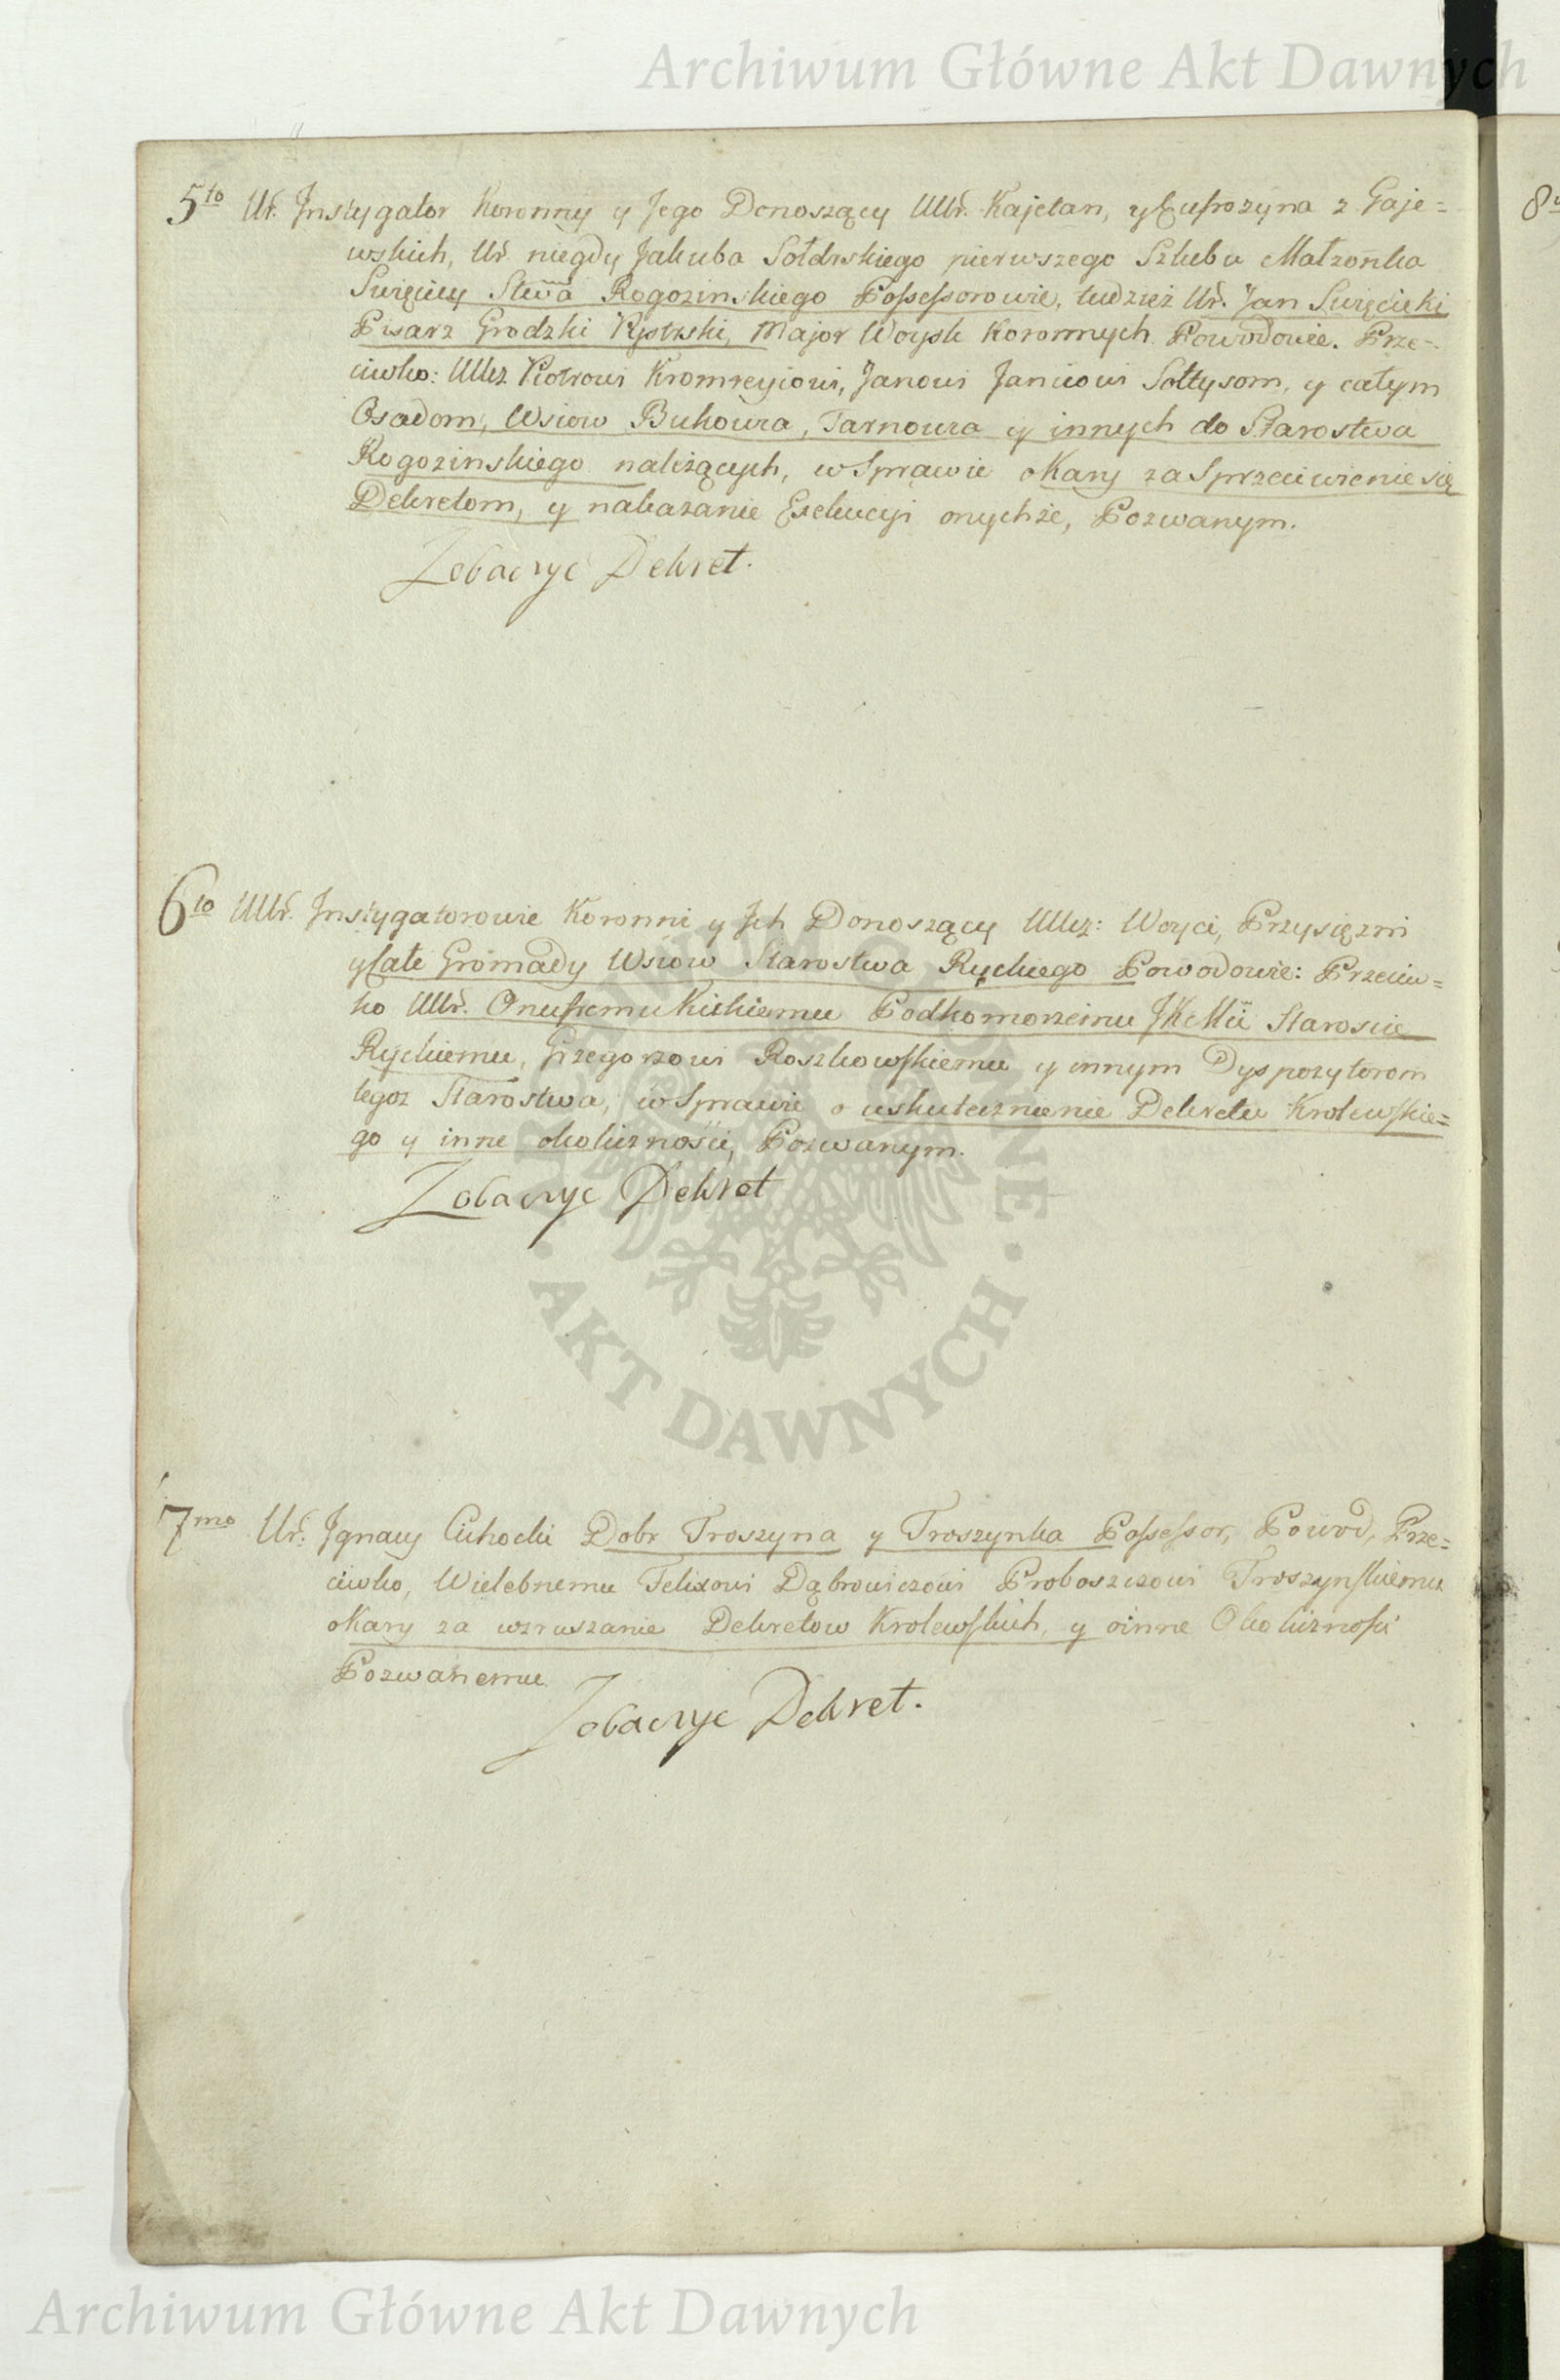 Archiwum Główne Akt Dawnych
5to Ur. Instygator Koronny y Jego Donoszący UUr. Kajetan, y Eufrozyna z Gaje=
wskich, Ur. niegdy Jakuba Sołdrskiego pierwszego Szlubu Małzonka
Swięciccy Stwa Rogozinskiego Possessorowie, tudzież Ur. Jan Swięcicki
Pisarz Grodzki Major Woysk Koronnych Powodowie. Prze=
ciwko: UUcz Piotrowi Janowi Janicowi Sołtysom, y całym
Osadom, Wsiow Bukowza, Tarnowza y innych do Starostwa
Rogozinskiego należących, w Sprawie o Kary za Sprzeciwienie się
Dekretom, y nakazanie Exekucyi onychże, Pozwanym.
Zobaczyc Dekret.
6to UUr. Instygatorowie Koronni y Ich Donoszący UUcz: Woyci, Przysięzni
y Całe Gromady Wsiow Starostwa Ryckiego Powodowie: Przeciw=
ko UUr. Onufremu Kickiemu Podkomorzemu JKMci Staroscie
Ryckiemu, Grzegorzowi Roszkowskiemu y innym Dyspozytorom
tegoz Starostwa, w Sprawie o uskutecznienie Dekretu Krolewskie=
go y inne okoliczności, Pozwanym.
Zobaczyc Dekret
7mo Ur. Ignacy Cichocki Dobr Troszyna y Troszynka Possessor, Powod, Prze=
ciwko, Wielebnemu Felixowi Dąbrowiczowi Proboszczowi Troszynskiemu
o Kary za wzruszanie Dekretow Krolewskich, y o inne Okoliznosci
Pozwanemu
Zobaczyc Dekret.
8
ARCHIWUM GŁÓWNE · AKT DAWNYCH ·
Archiwum Główne Akt Dawnych